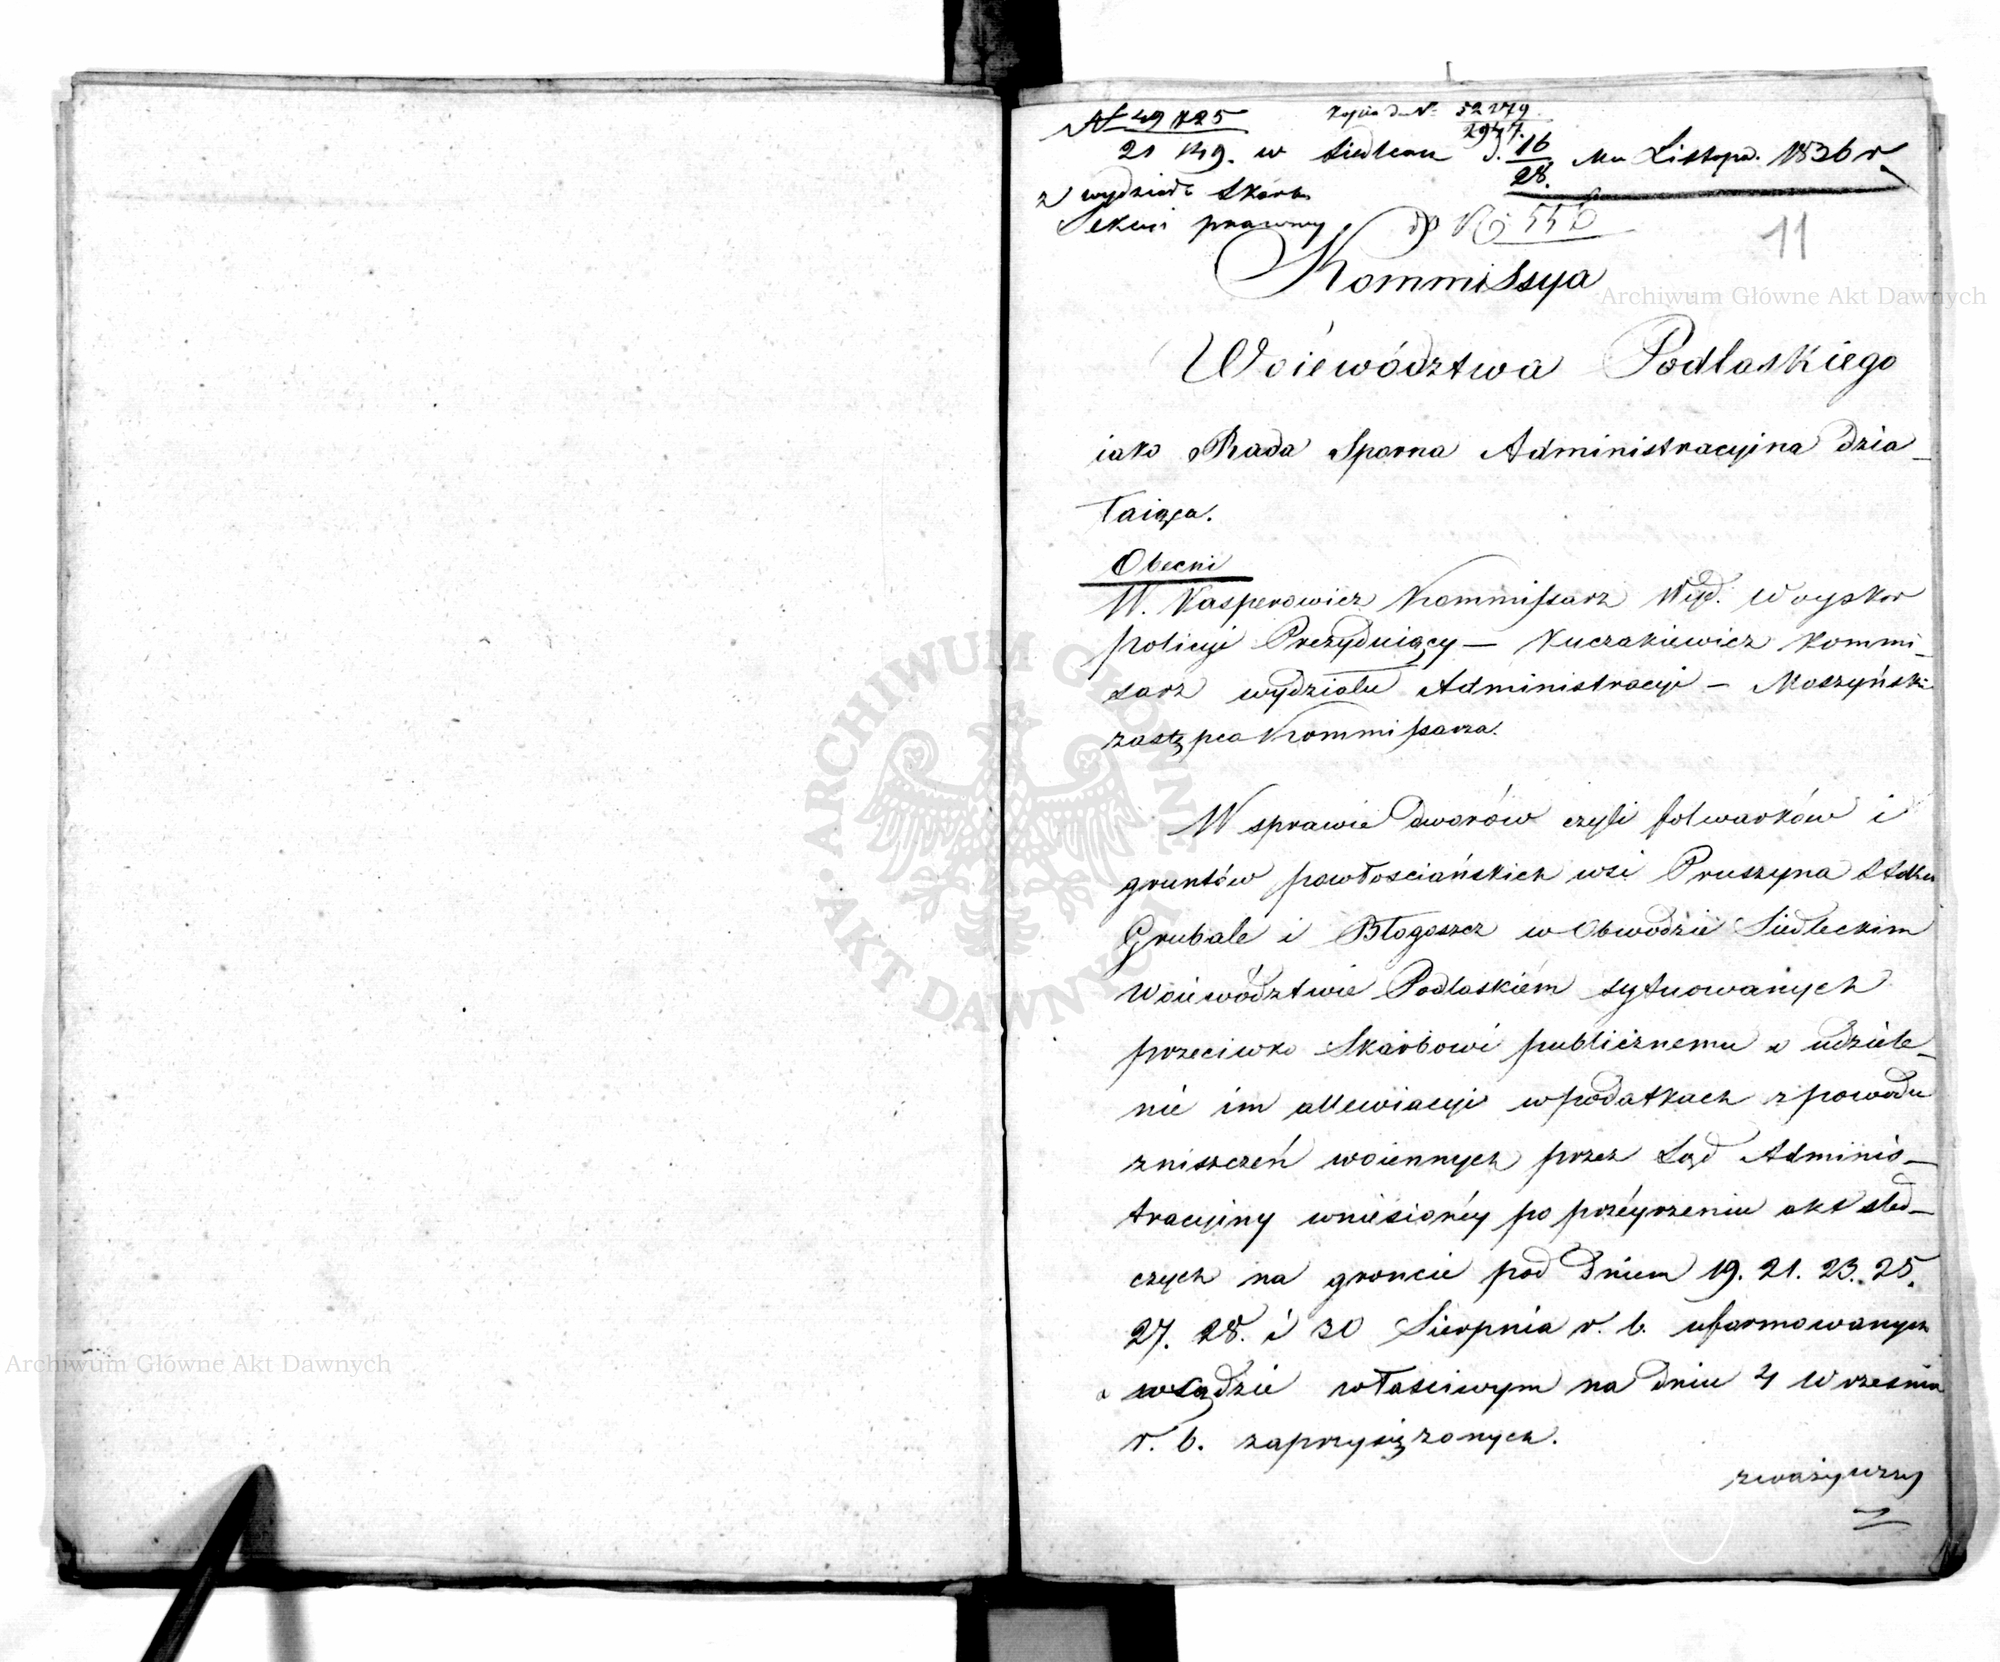 N 49125 Kopia do N. 52179
2947.
21 149. w Siedlcach d. 16 Ma Listopad. 1836 r
28.
z wydziału Skarbu
Sekcii prawny do No 556
11
Kommissya
Woiewództwa Podlaskiego
iako Rada Sporna Administracyina dzia_
łaiąca.
Obecni
W. Kasperowicz Kommissarz Wyd. Woysko
policyi Prezyduiący — Kuczakiewicz Kommi_
sarz wydziału Administracyi — Moszyński
zastępca Kommissarza.
W sprawie dworów czyli folwarków i
gruntów powłościańskich wsi Pruszyna
Grubale i Błogoszcz w Obwodzie Siedleckim
Woiewództwie Podlaskiém sytuowanych
przeciwko Skarbowi publicznemu o udziele_
nie im allewiacyi w podatkach z powodu
zniszczeń woiennych przez Sąd Adminis_
tracyiny wniesionéy po przéyrzeniu akt śled_
czych na gruncie pod dniem 19. 21. 23. 25.
27. 28. i 30 Sierpnia r. b. uformowanych
a w sądzie właściwym na dniu 4 Września
r. b. zaprzysiężonych.
zważywszy
Archiwum Główne Akt Dawnych
Archiwum Główne Akt Dawnych
ARCHIWUM GŁÓWNE · AKT DAWNYCH ·